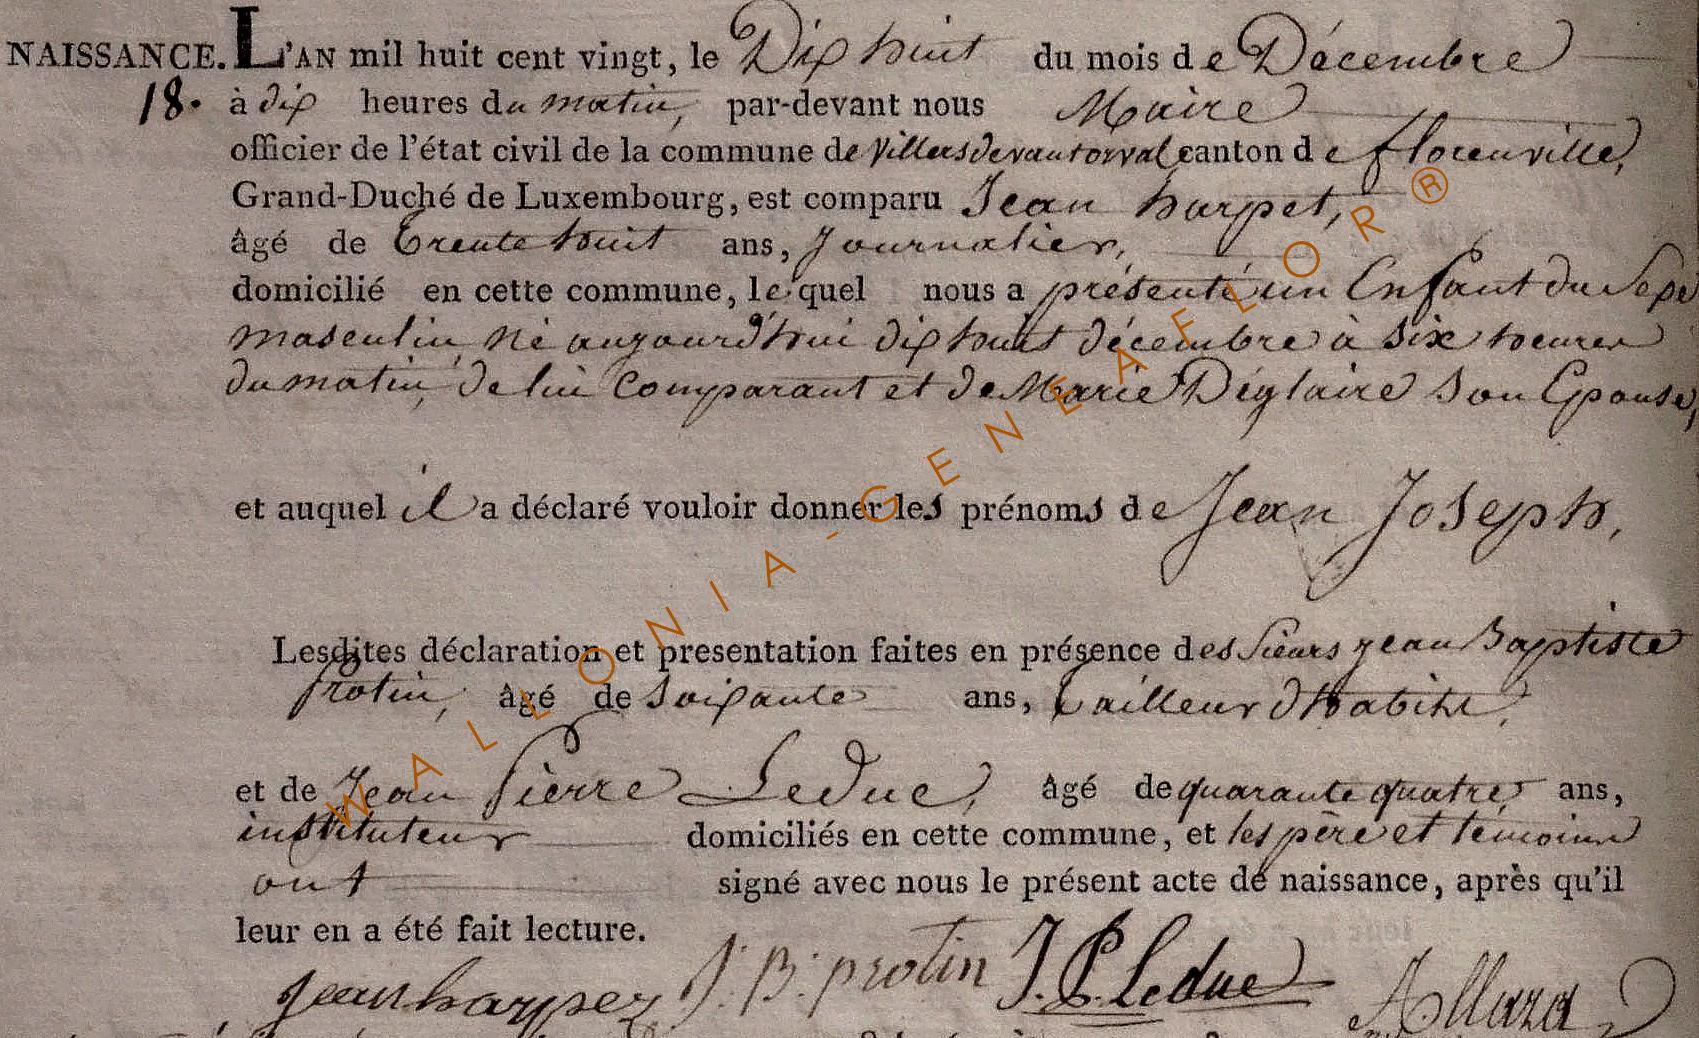 NAISSANCE. L'AN mil huit cent vingt, le Dix huit du mois de Décembre
18. à dix heures du matin, par-devant nous Maire
officier de l'état civil de la commune de Villersdevantorval canton de florenville,
Grand-Duché de Luxembourg, est comparu Jean harpet,
âgé de trente huit ans, Journalier,
domicilié en cette commune, lequel nous a présenté un Enfant du Sexe
masculin, né aujourd'hui dix huit décembre à six heures
du matin, de lui Comparant et de Marie Déglaire son Epouse,
et auquel il a déclaré vouloir donner les prénoms de Jean Joseph,
Lesdites déclaration et presentation faites en présence des Sieurs jean Baptiste
Protin, âgé de soixante ans, tailleur d'habits,
et de Jean Pierre Leduc, âgé de quarante quatre, ans,
instituteur domiciliés en cette commune, et les père et témoins
ont signé avec nous le présent acte de naissance, après qu'il
leur en a été fait lecture.
jean harpez J. B. protin J. P. Leduc
WALLONIA-GENEAFLOR®